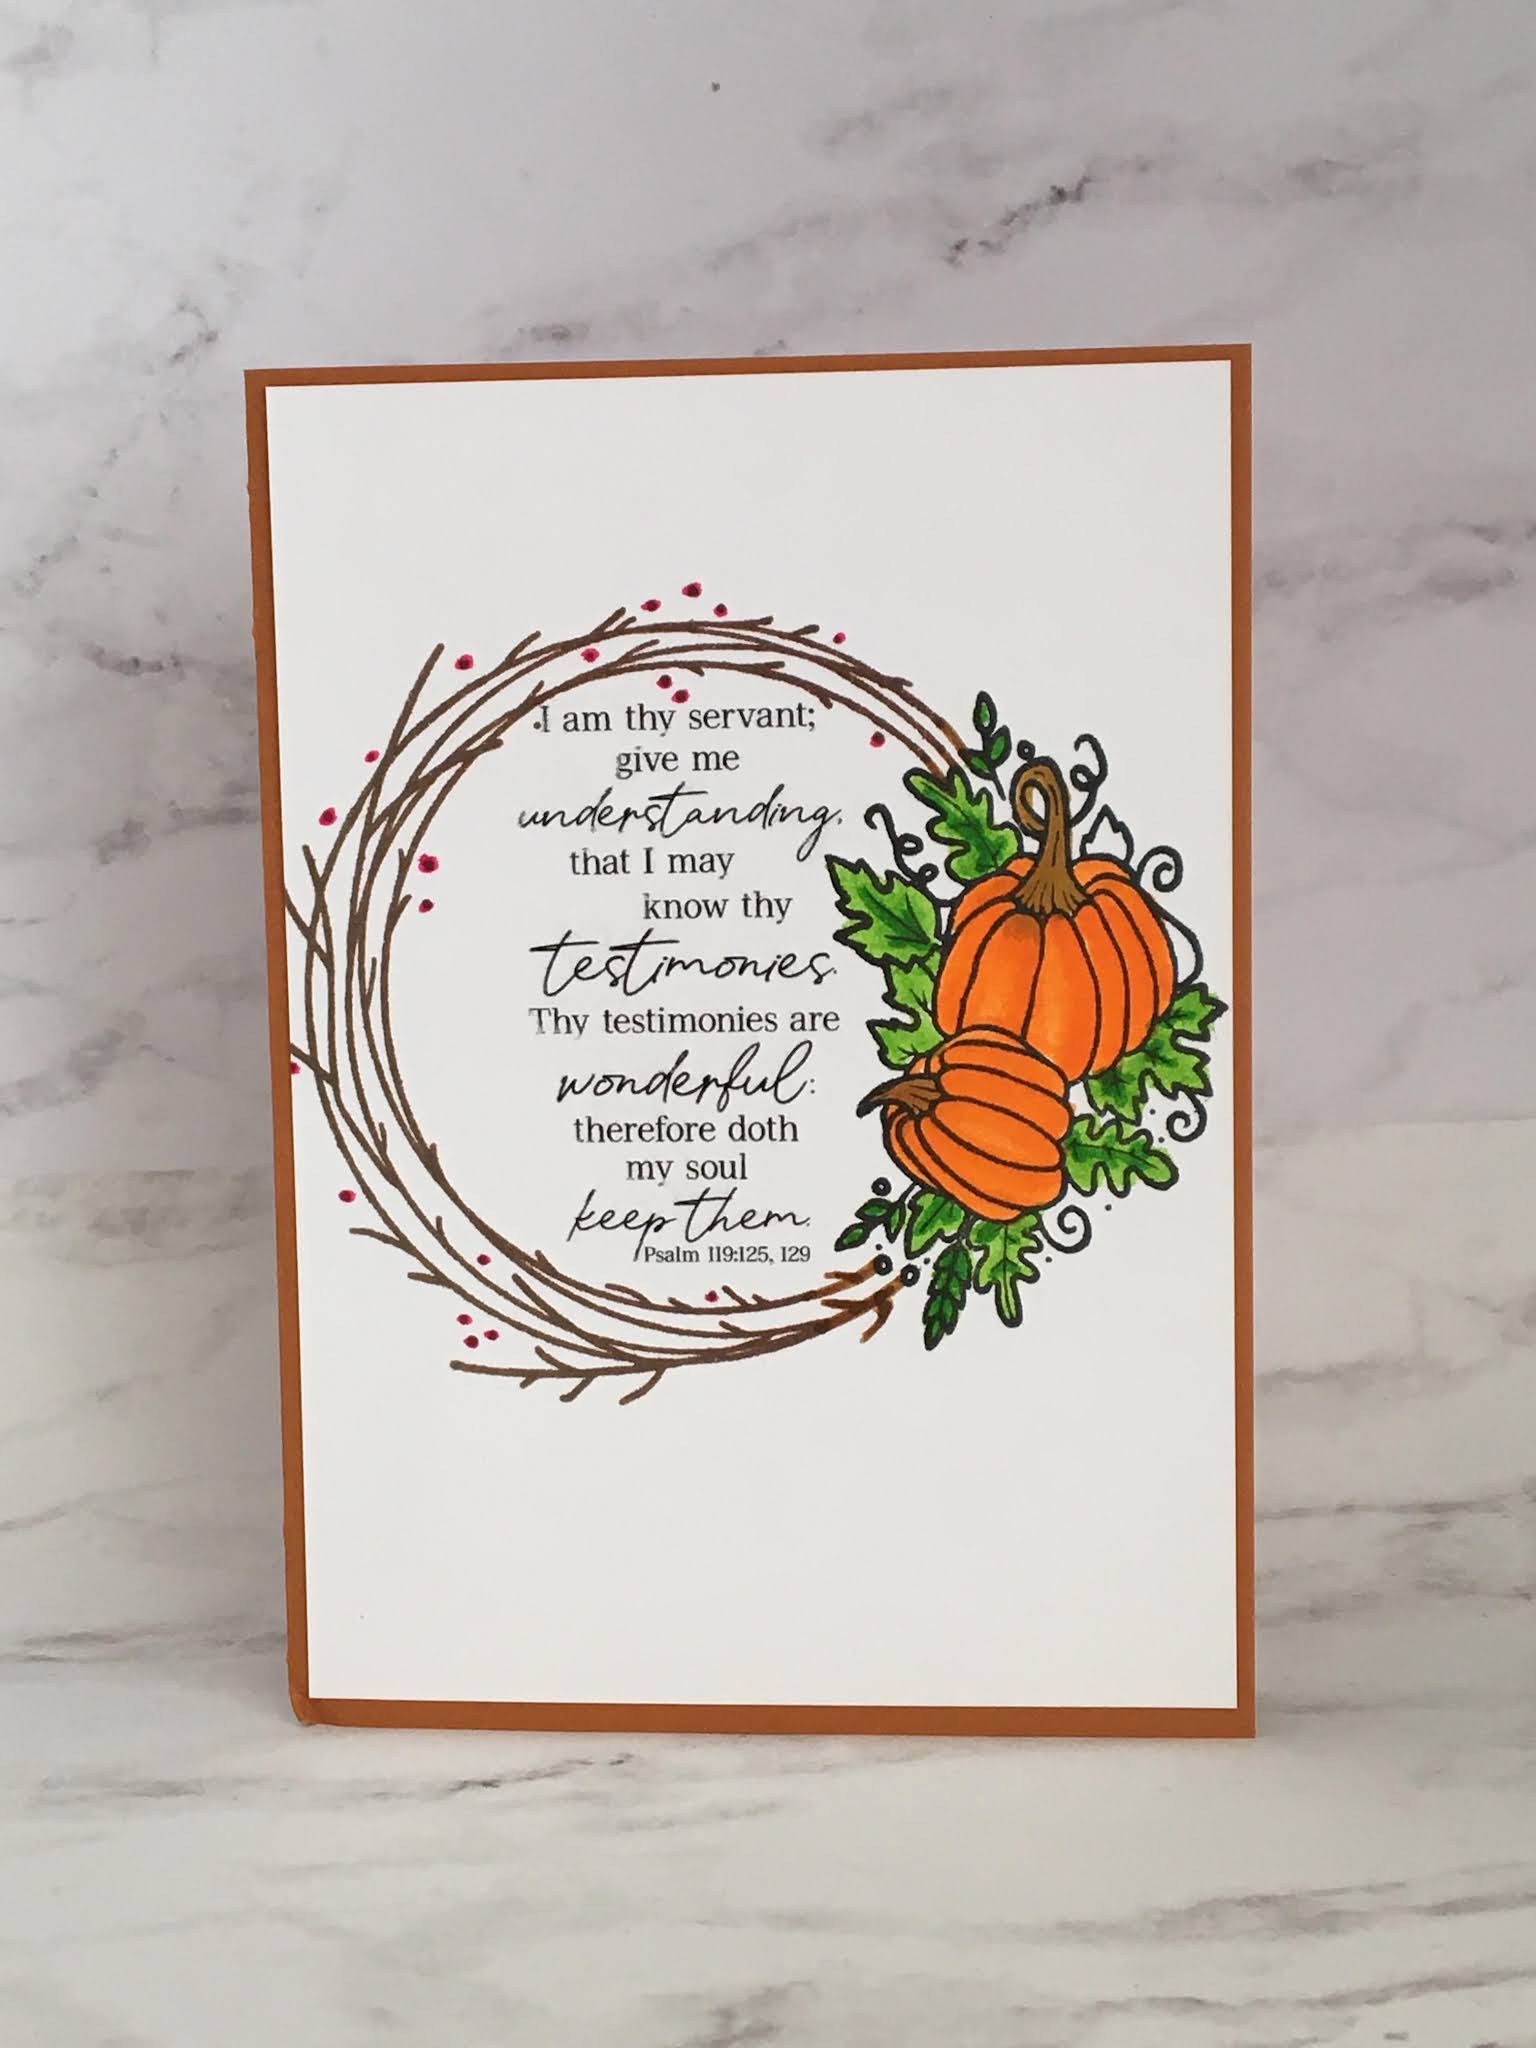 I am thy servant;
give me
understanding,
that I may
know thy
testimonies.
Thy testimonies are
wonderful:
therefore doth
my soul
keep them.
Psalm 119:125, 129